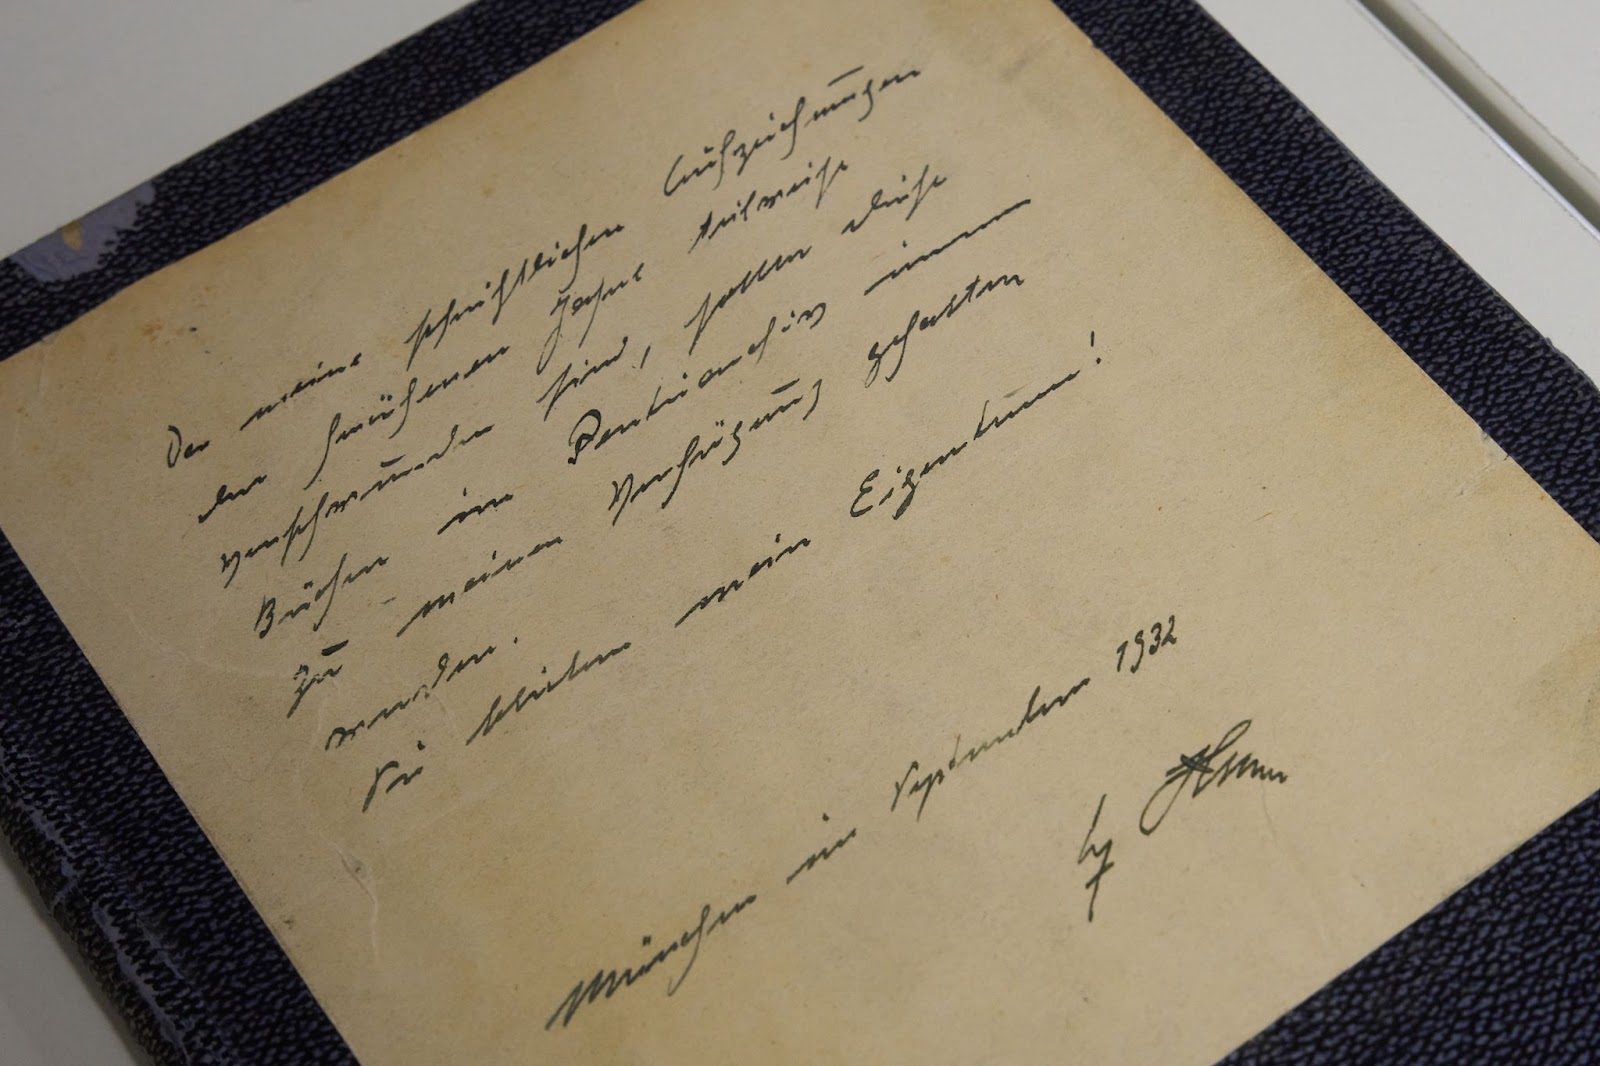 Da meine schriftlichen Aufzeichnungen
der früheren Jahre teilweise
verschwunden sind, sollen diese
Bücher im Parteiarchiv immer
zu meiner Verfügung gehalten
werden.
Sie bleiben mein Eigentum!
München im September 1932